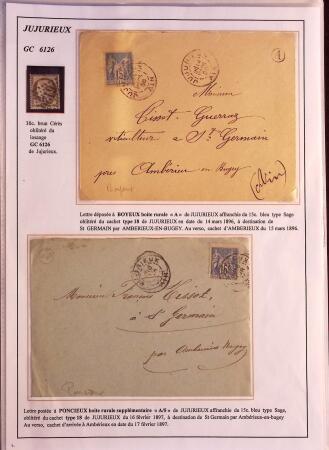 JUJURIEUX
GC 6126
30c. brun Cérès
oblitéré du
losange
GC 6126
de Jujurieux.
1
Monsieur
Cissot-Guerraz
viticulteur à St Germain
près Ambérieu-en-Bugey
(Ain)
Lettre déposée à BOYEUX boite rurale « A » de JUJURIEUX affranchie du 15c. bleu type Sage
oblitéré du cachet type 18 de JUJURIEUX en date du 14 mars 1896, à destination de
St GERMAIN par AMBERIEU-EN-BUGEY. Au verso, cachet d'AMBERIEUX du 15 mars 1896.
JUJURIEUX
15
Monsieur Francis Tissot,
à St Germain
par Ambérieu Bugey
Lettre postée à PONCIEUX boite rurale supplémentaire « A/6 » de JUJURIEUX affranchie du 15c. bleu type Sage,
oblitéré du cachet type 18 de JUJURIEUX du 16 février 1897, à destination de St Germain par Ambérieu-en-bugey
Au verso, cachet d'arrivée à Ambérieux en date du 17 février 1897.